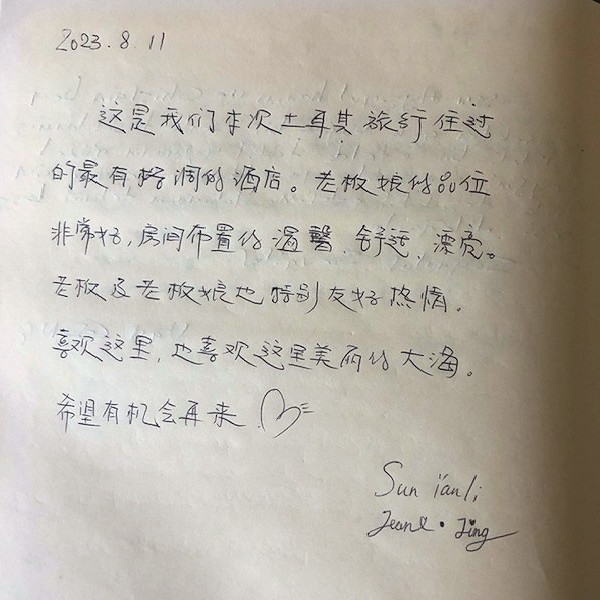 2023.8.11
这是我们本次土耳其旅行住过
的最有格调的酒店。老板娘的品位
非常好,房间布置的温馨、舒适、漂亮。
老板及老板娘也特别友好热情。
喜欢这里,也喜欢这里美丽的大海。
希望有机会再来
Sun
Jing